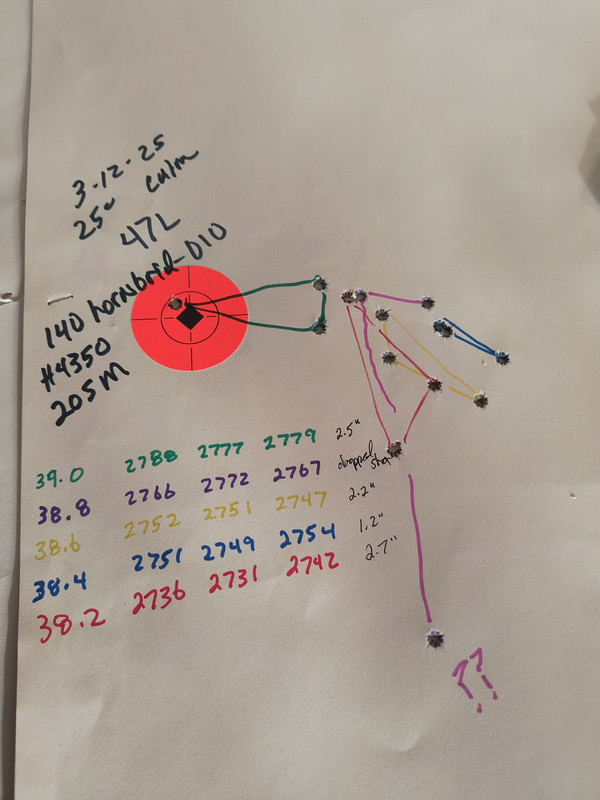 3-12-25
25° calm
47L
140 hornsbrid-D10
H4350
205M
39.0 2788 2777 2779 2.5"
38.8 2766 2772 2767 dropped shot
38.6 2752 2751 2747 2.2"
38.4 2751 2749 2754 1.2"
38.2 2736 2731 2742 2.7"
??